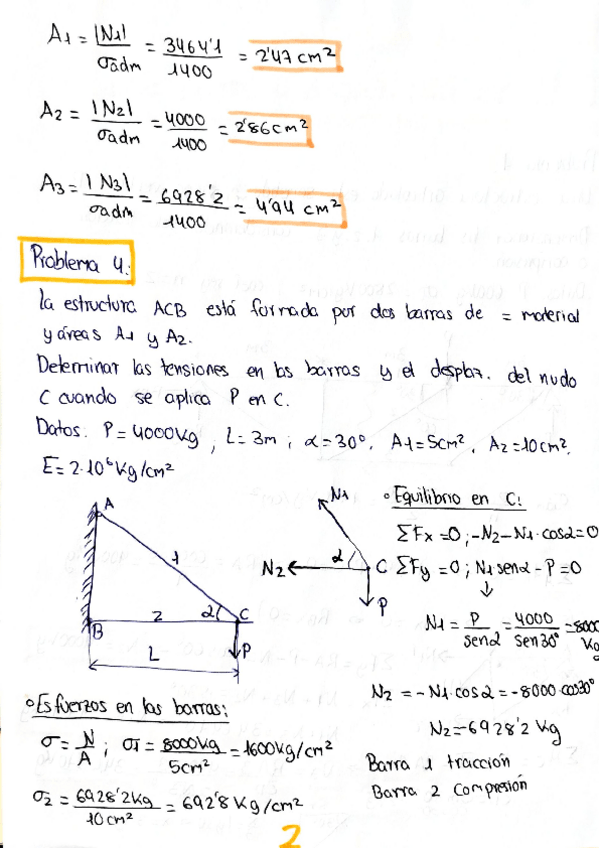 A1 = |N1|/σadm = 3464'1/1400 = 2'47 cm²
A2 = |N2|/σadm = 4000/1400 = 2'86 cm²
A3 = |N3|/σadm = 6928'2/1400 = 4'94 cm²
Problema 4:
la estructura ACB está formada por dos barras de = material
y áreas A1 y A2.
Determinar las tensiones en las barras y el desplaz. del nudo
C cuando se aplica P en C.
Datos: P=4000Kg, L=3m; α=30°, A1=5cm², A2=10cm²,
E=2·10⁶ Kg/cm²
A
1
2
α
C
B
P
L
N1
N2
α
C
P
Equilibrio en C:
ΣFx=0; -N2-N1·cosα=0
ΣFy=0; N1 senα-P=0
N1 = P/senα = 4000/sen30° = 8000 Kg
N2 = -N1·cosα = -8000·cos30°
N2=-6928'2 Kg
Barra 1 tracción
Barra 2 compresión
Esfuerzos en las barras:
σ = N/A; σ1 = 8000Kg/5cm² = 1600Kg/cm²
σ2 = 6928'2Kg/10cm² = 692'8 Kg/cm²
2